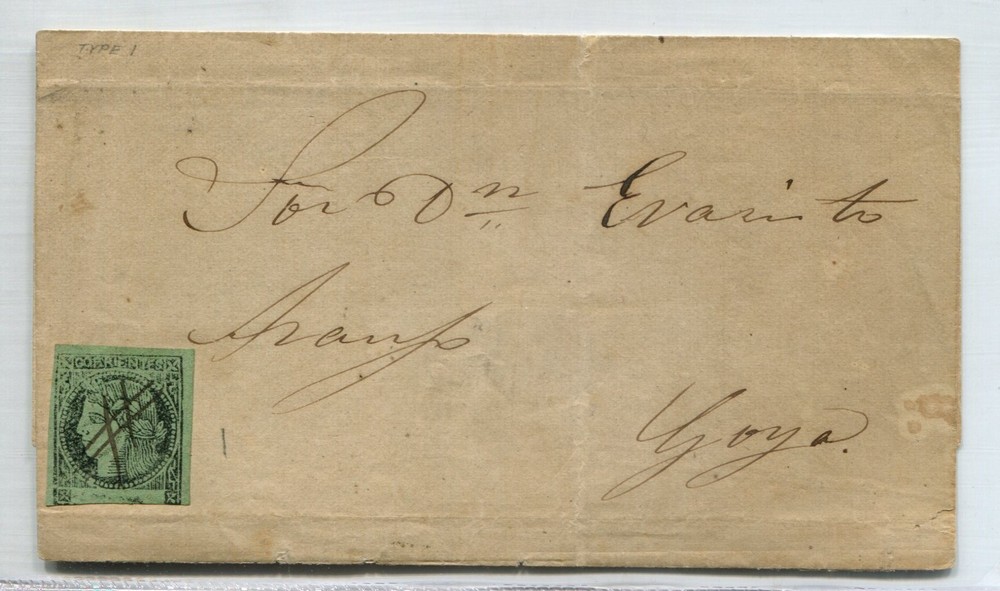 TYPE 1
Sor Dn Evaristo
Goya.
CORRIENTES